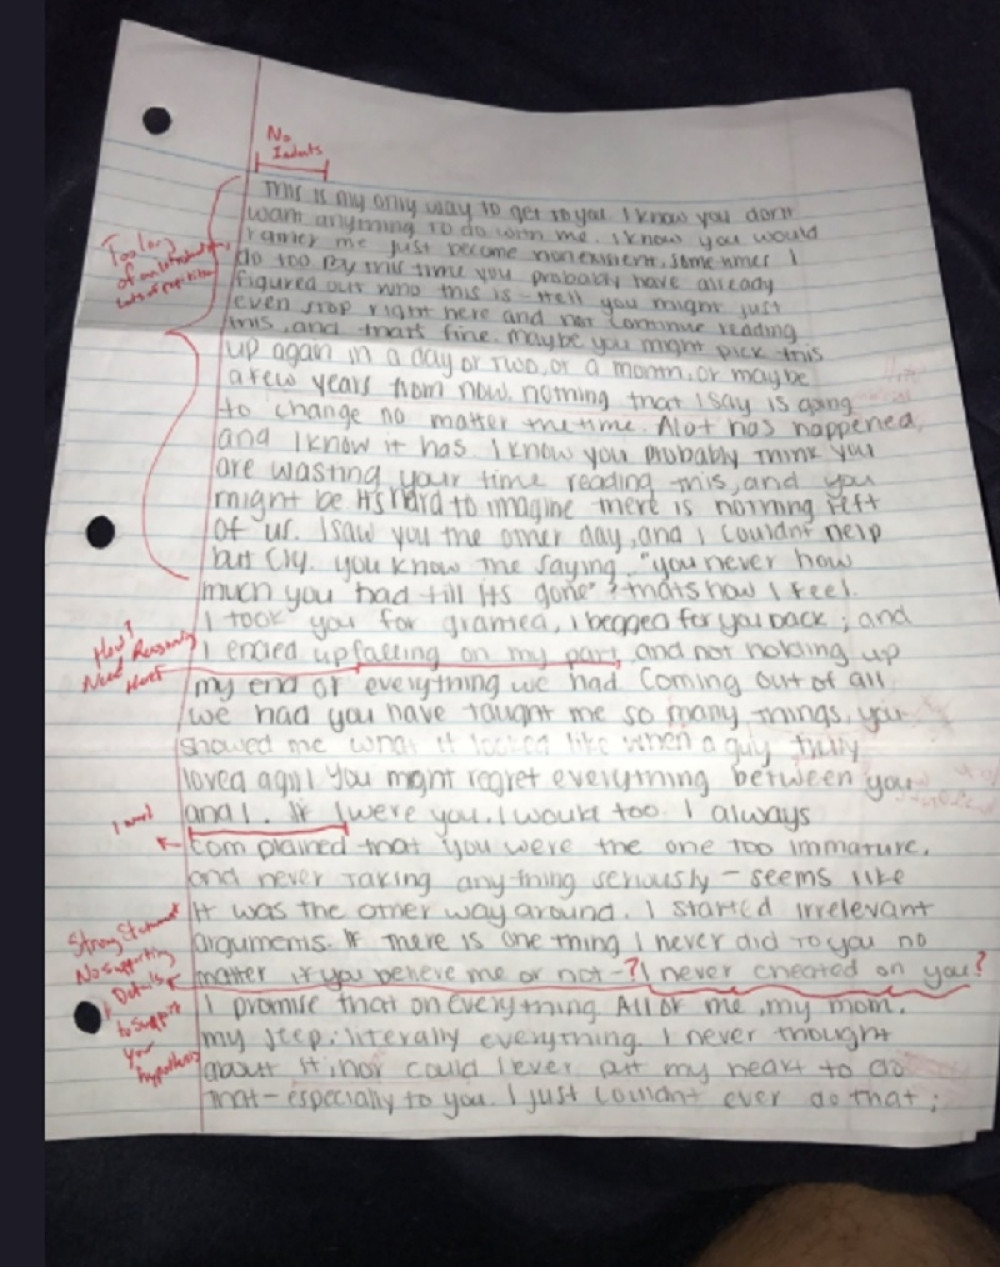 No
Indents
This is my only way to get to you I know you don't
want anything to do with me. I know you would
rather me just become nonexistent, sometimes I
do too By this time you probably have already
figured out who this is - Hell you might just
even stop right here and not continue reading
this, and that's fine. maybe you might pick this
up again in a day or two, or a month, or maybe
a few years from now. nothing that I say is going
to change no matter the time. Alot has happened,
and I know it has. I know you probably think you
are wasting your time reading this, and you
might be It's hard to imagine there is nothing left
of us. I saw you the other day, and I couldn't help
but cry. you know the saying, "you never how
much you had till its gone" thats how I feel.
I took you for granted, I begged for you back; and
I ended up falling on my part, and not holding up
my end of everything we had. Coming out of all
we had you have taught me so many things, you
showed me what it looked like when a guy fully
loved a girl You might regret everything between you
and I. If I were you. I would too. I always
complained that you were the one too immature,
and never taking anything seriously - seems like
It was the other way around. I started irrelevant
arguments. If there is one thing I never did to you no
matter if you believe me or not -? I never cheated on you?
I promise that on everything All of me, my mom,
my step; literally everything. I never thought
about it, nor could I ever put my heart to do
that - especially to you. I just couldn't ever do that;
Too long
of an introduction
Lots of repetition
How?
Need Reasoning
Here
Strong Statement
No supporting
Details
to support
your
hypothesis